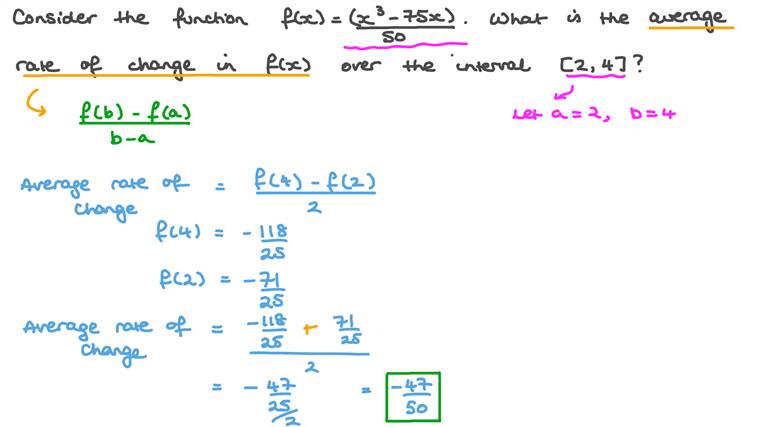 Consider the function f(x) = (x³ - 75x)/50. What is the average
rate of change in f(x) over the interval [2, 4]?
Let a = 2, b = 4
(f(b) - f(a))/(b - a)
Average rate of change = (f(4) - f(2))/2
f(4) = -118/25
f(2) = -71/25
Average rate of change = (-118/25 + 71/25)/2
= -47/25/2 = -47/50